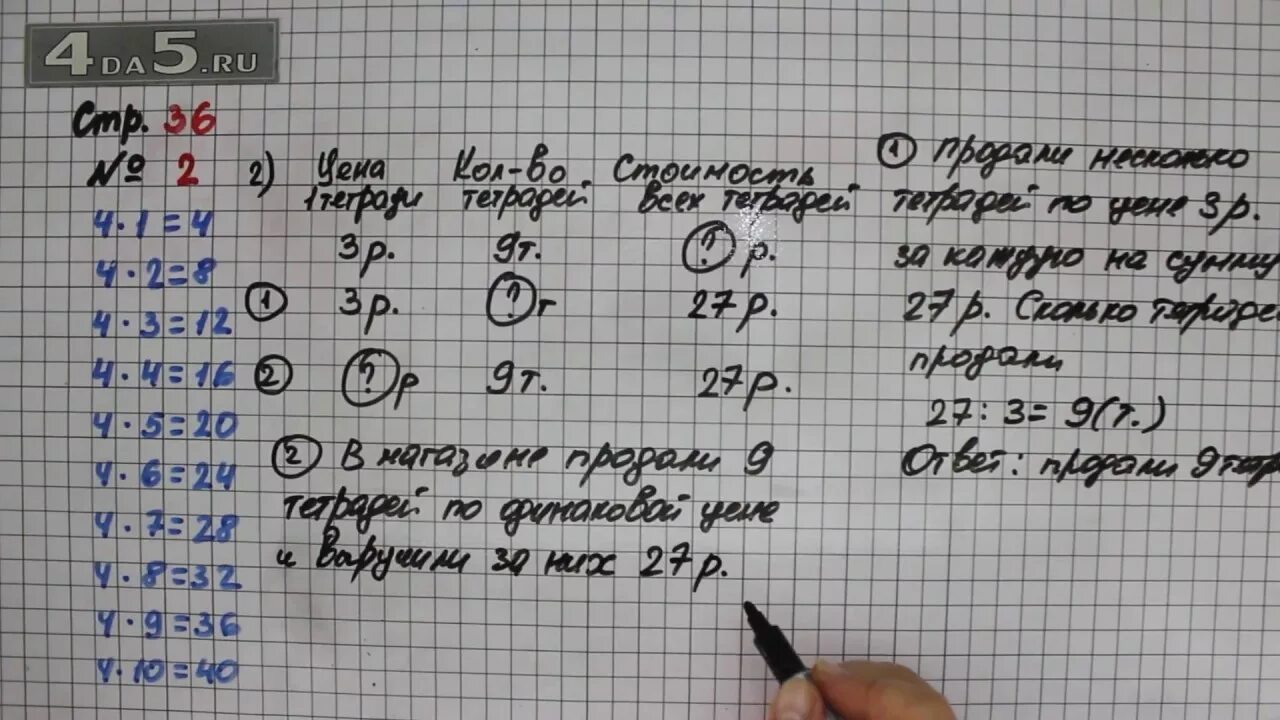 4DA5.RU
Стр. 36
№ 2
4·1=4
4·2=8
4·3=12
4·4=16
4·5=20
4·6=24
4·7=28
4·8=32
4·9=36
4·10=40
2) Цена Кол-во Стоимость
1тетради тетрадей всех тетрадей
3р. 9т. ? р.
1 3р. ? т 27р.
2 ? р 9т. 27р.
2 В магазине продали 9
тетрадей по одинаковой цене
и выручили за них 27р.
1 Продали несколько
тетрадей по цене 3р.
за каждую на сумму
27р. Сколько
продали
27:3=9(т.)
Ответ: продали 9